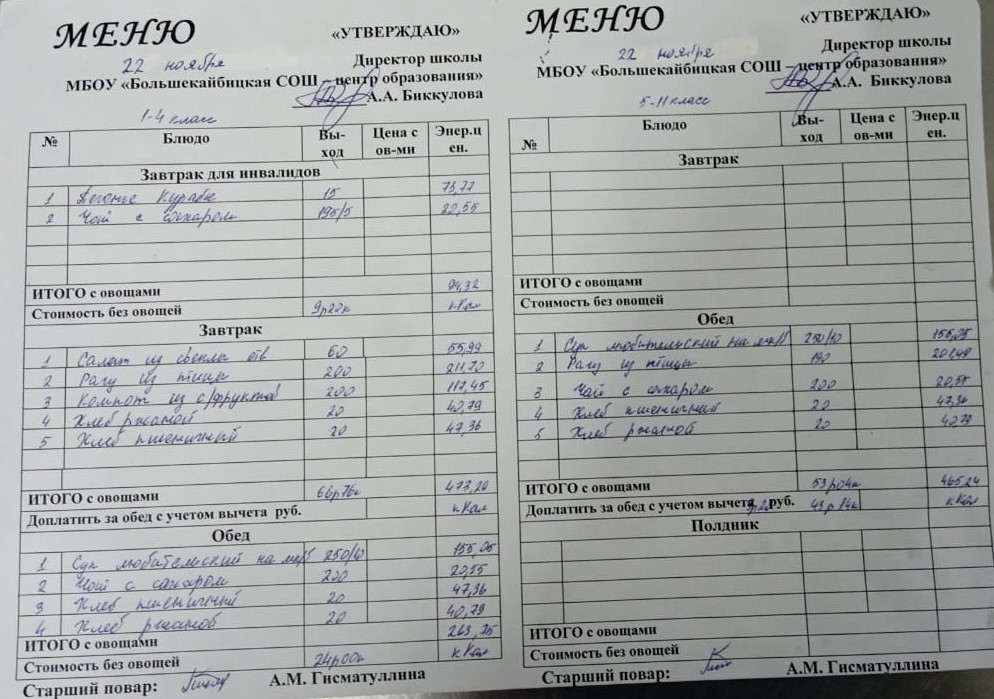 МЕНЮ
«УТВЕРЖДАЮ»
22 ноября
Директор школы
МБОУ «Большекайбицкая СОШ – центр образования»
А.А. Биккулова
1-4 класс
№ Блюдо Вы-ход Цена с ов-ми Энер.ц ен.
Завтрак для инвалидов
1 Печенье Курабье 15 73,77
2 Чай с сахаром 195/5 20,55
ИТОГО с овощами 94,32
Стоимость без овощей 9р20к кКал
Завтрак
1 Салат из свеклы отв 60 55,99
2 Рагу из птицы 200 211,70
3 Компот из с/фруктов 200 117,45
4 Хлеб ржаной 20 40,79
5 Хлеб пшеничный 20 47,36
ИТОГО с овощами 66р76к 473,20
Доплатить за обед с учетом вычета руб. кКал
Обед
1 Суп любительский на м/б 250/10 155,05
2 Чай с сахаром 200 20,55
3 Хлеб пшеничный 20 47,36
4 Хлеб ржаной 20 40,79
ИТОГО с овощами 263,75
Стоимость без овощей 24р00к кКал
Старший повар: А.М. Гисматуллина
МЕНЮ
«УТВЕРЖДАЮ»
22 ноября
Директор школы
МБОУ «Большекайбицкая СОШ – центр образования»
А.А. Биккулова
5-11 класс
№ Блюдо Вы-ход Цена с ов-ми Энер.ц ен.
Завтрак
ИТОГО с овощами
Стоимость без овощей
Обед
1 Суп любительский на м/б 250/10 155,05
2 Рагу из птицы 190
3 Чай с сахаром 200 20,55
4 Хлеб пшеничный 20 47,36
5 Хлеб ржаной 20 40,79
ИТОГО с овощами 53р04к 465,24
Доплатить за обед с учетом вычета руб. 43р14к кКал
Полдник
ИТОГО с овощами
Стоимость без овощей
Старший повар: А.М. Гисматуллина